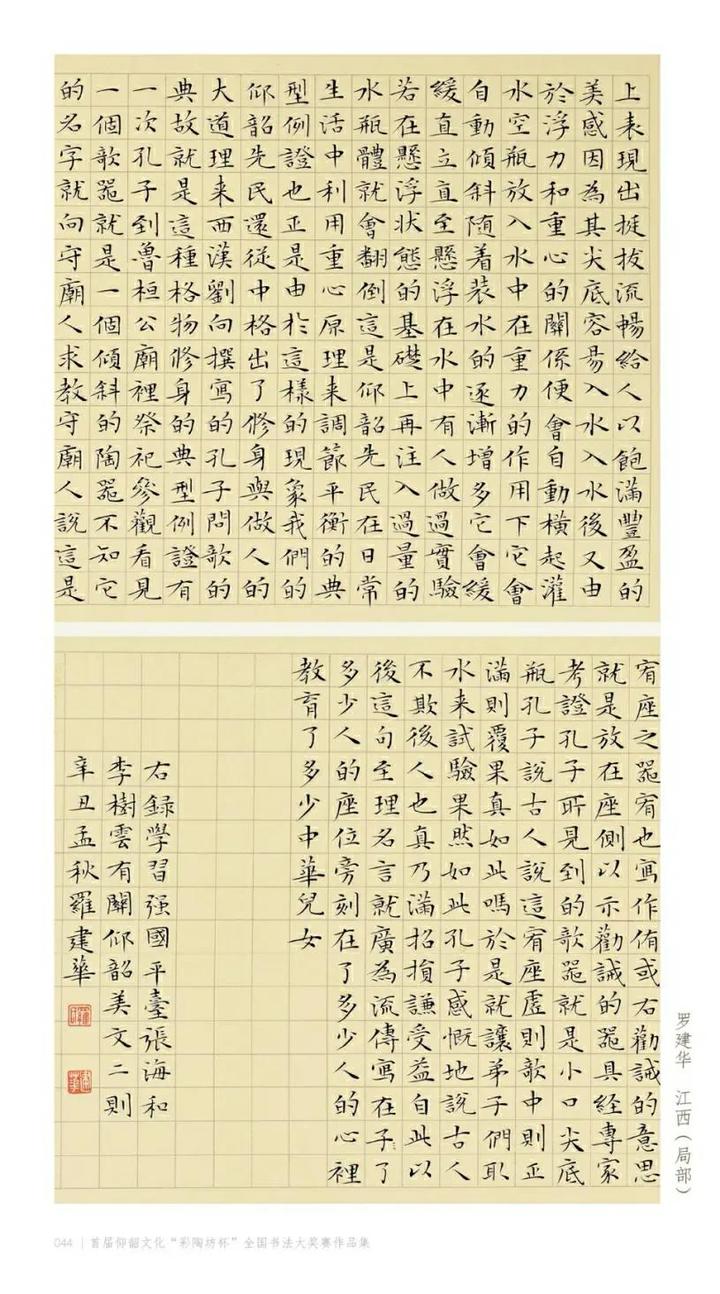 上表現出挺拔流暢給人以飽滿豐盈的
美感因為其尖底容易入水入水後又由
於浮力和重心的關係便會自動橫起灌
水空瓶放入水中在重力的作用下它會
自動傾斜隨着裝水的逐漸增多它會緩
緩直立直至懸浮在水中有人做過實驗
若在懸浮狀態的基礎上再注入過量的
水瓶體就會翻倒這是仰韶先民在日常
生活中利用重心原理来調節平衡的典
型例證也正是由於這樣的現象我們的
仰韶先民還從中格出了修身與做人的
大道理来西漢劉向撰寫的孔子問欹的
典故就是這種格物修身的典型例證有
一次孔子到魯桓公廟裡祭祀參觀看見
一個欹器就是一個傾斜的陶器不知它
的名字就向守廟人求教守廟人說這是
宥座之器宥也寫作侑或右勸誡的意思
就是放在座側以示勸誡的器具經專家
考證孔子所見到的欹器就是小口尖底
瓶孔子說古人說這宥座虛則欹中則正
滿則覆果真如此嗎於是就讓弟子們取
水来試驗果然如此孔子感慨地說古人
不欺後人也真乃滿招損謙受益自此以
後這句至理名言就廣為流傳寫在了
多少人的座位旁刻在了多少人的心裡
教育了多少中華兒女
右錄學習强國平臺張海和
李樹雲有關仰韶美文二則
辛丑孟秋羅建華
罗建华 江西（局部）
044 | 首届仰韶文化“彩陶坊杯”全国书法大奖赛作品集